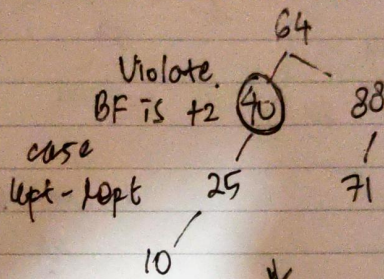 64
Violate.
BF is +2 40 88
case
left-left 25 71
10